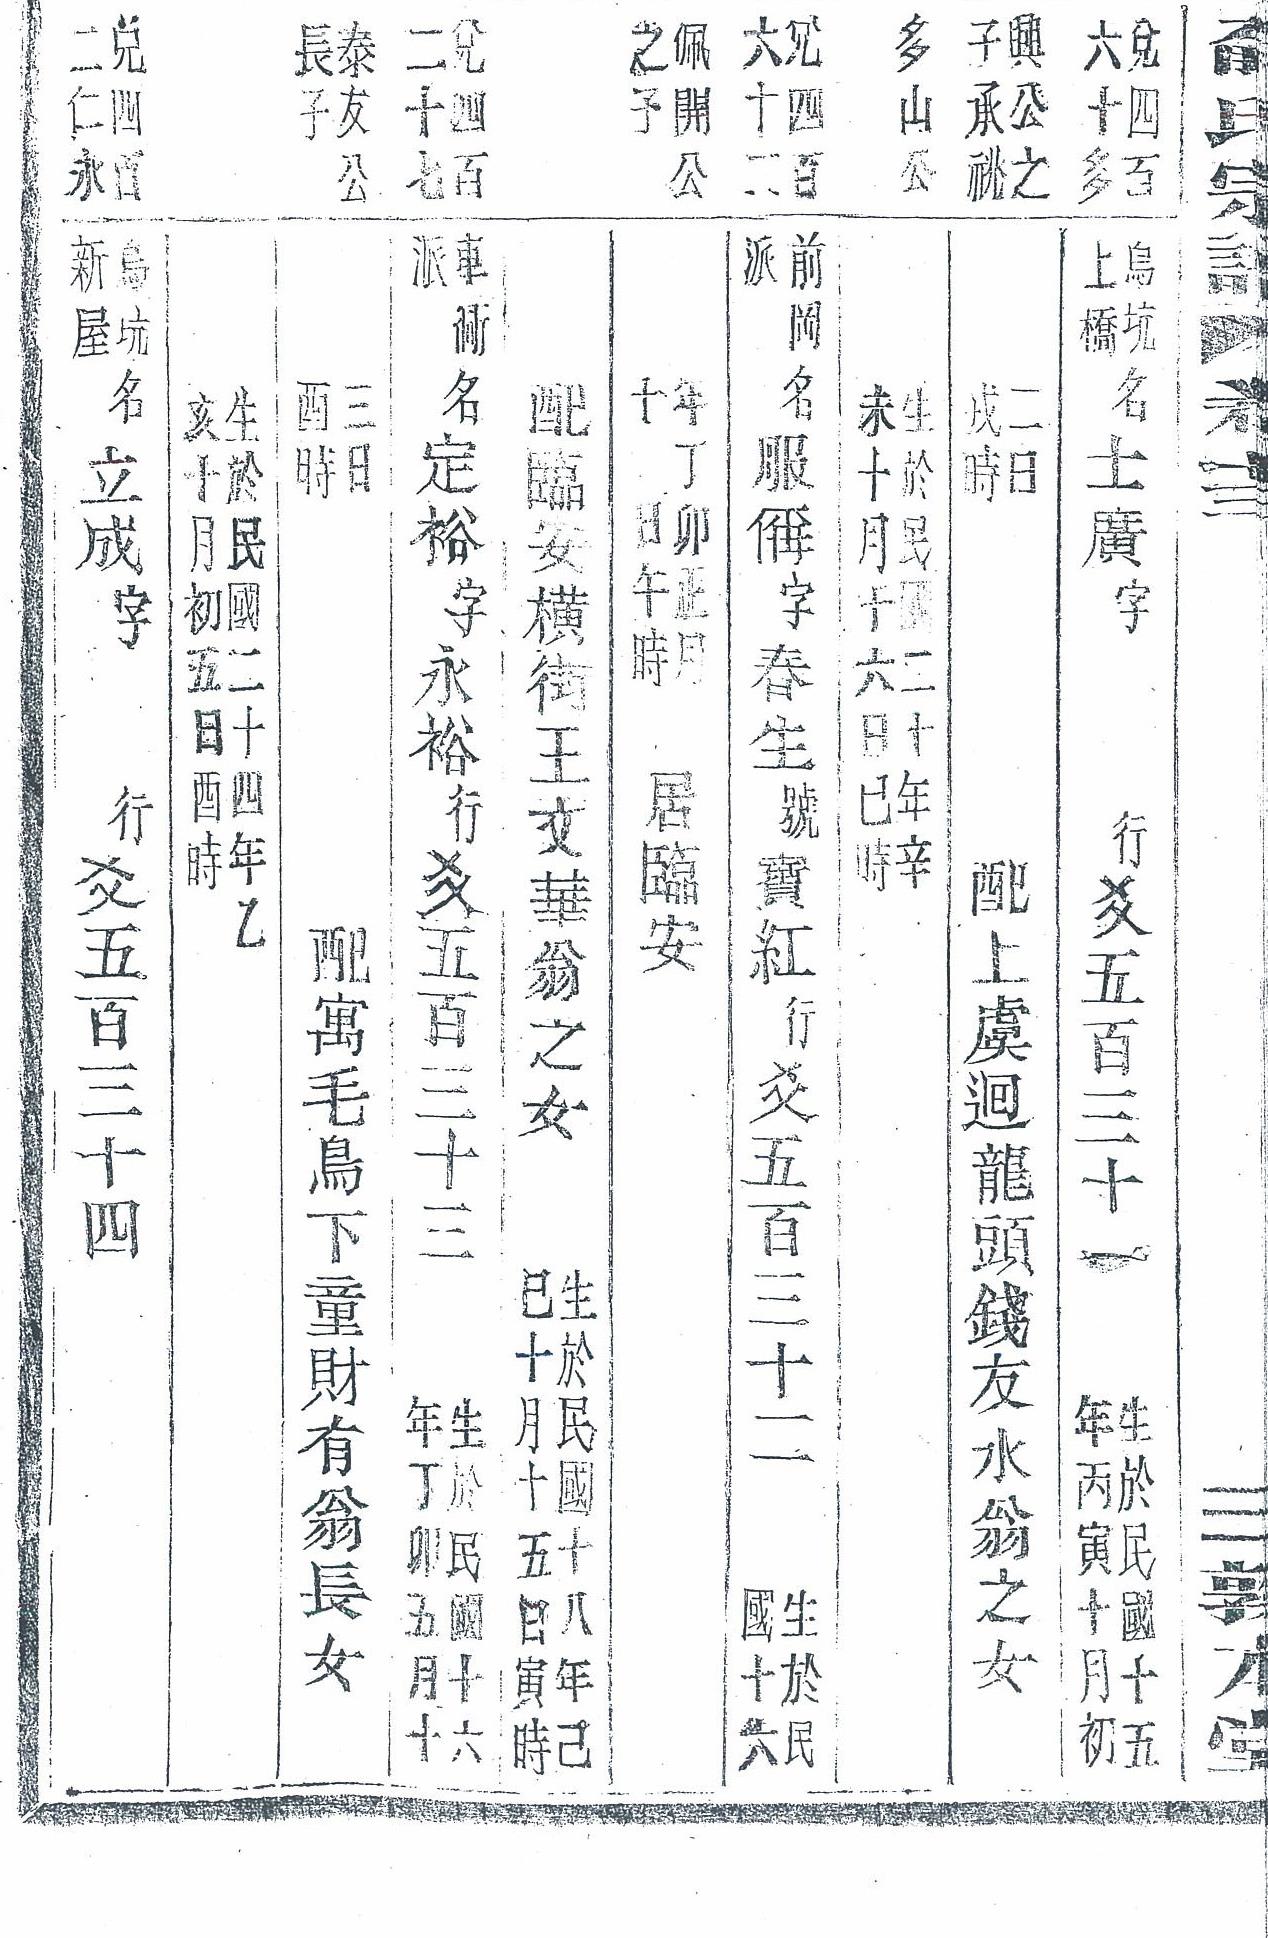 宗譜 卷十三 三 敦本堂
兌四百
六十多
興公之
子承祧
多山公
兌四百
六十二
佩開公
之子
兌四百
二十七
泰友公
長子
兌四百
二仁永
烏坑
上橋
名士廣字 行爻五百三十一
生於民國十五
年丙寅十月初
二日
戌時
配上虞迴龍頭錢友水翁之女
生於民國二十年辛
未十月十六日巳時
前岡
派
名服偁字春生號寶紅行爻五百三十二
生於民
國十六
年丁卯正月
十 日午時
居臨安
配臨安橫街王文華翁之女
生於民國十八年己
巳十月十五日寅時
車衕
派
名定裕字永裕行爻五百三十三
生於民國十六
年丁卯五月十
三日
酉時
配寓毛鳥下童財有翁長女
生於民國二十四年乙
亥十月初五日酉時
烏坑
新屋
名立成字 行爻五百三十四